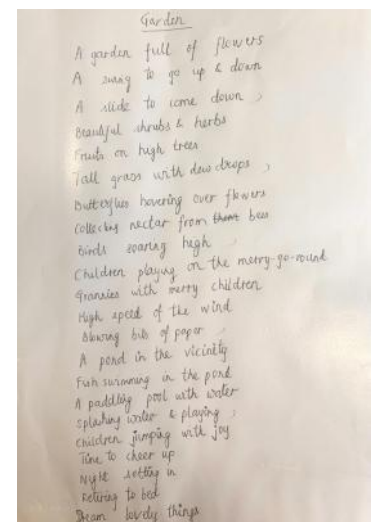 Garden
A garden full of flowers
A swing to go up & down
A slide to come down,
Beautiful shrubs & herbs
Fruits on high trees
Tall grass with dew drops,
Butterflies hovering over flowers
Collecting nectar from bees
Birds soaring high
Children playing on the merry-go-round
Grannies with merry children
High speed of the wind
Blowing bits of paper,
A pond in the vicinity
Fish swimming in the pond
A paddling pool with water
Splashing water & playing,
Children jumping with joy
Time to cheer up
Night setting in
Retiring to bed
Dream lovely things